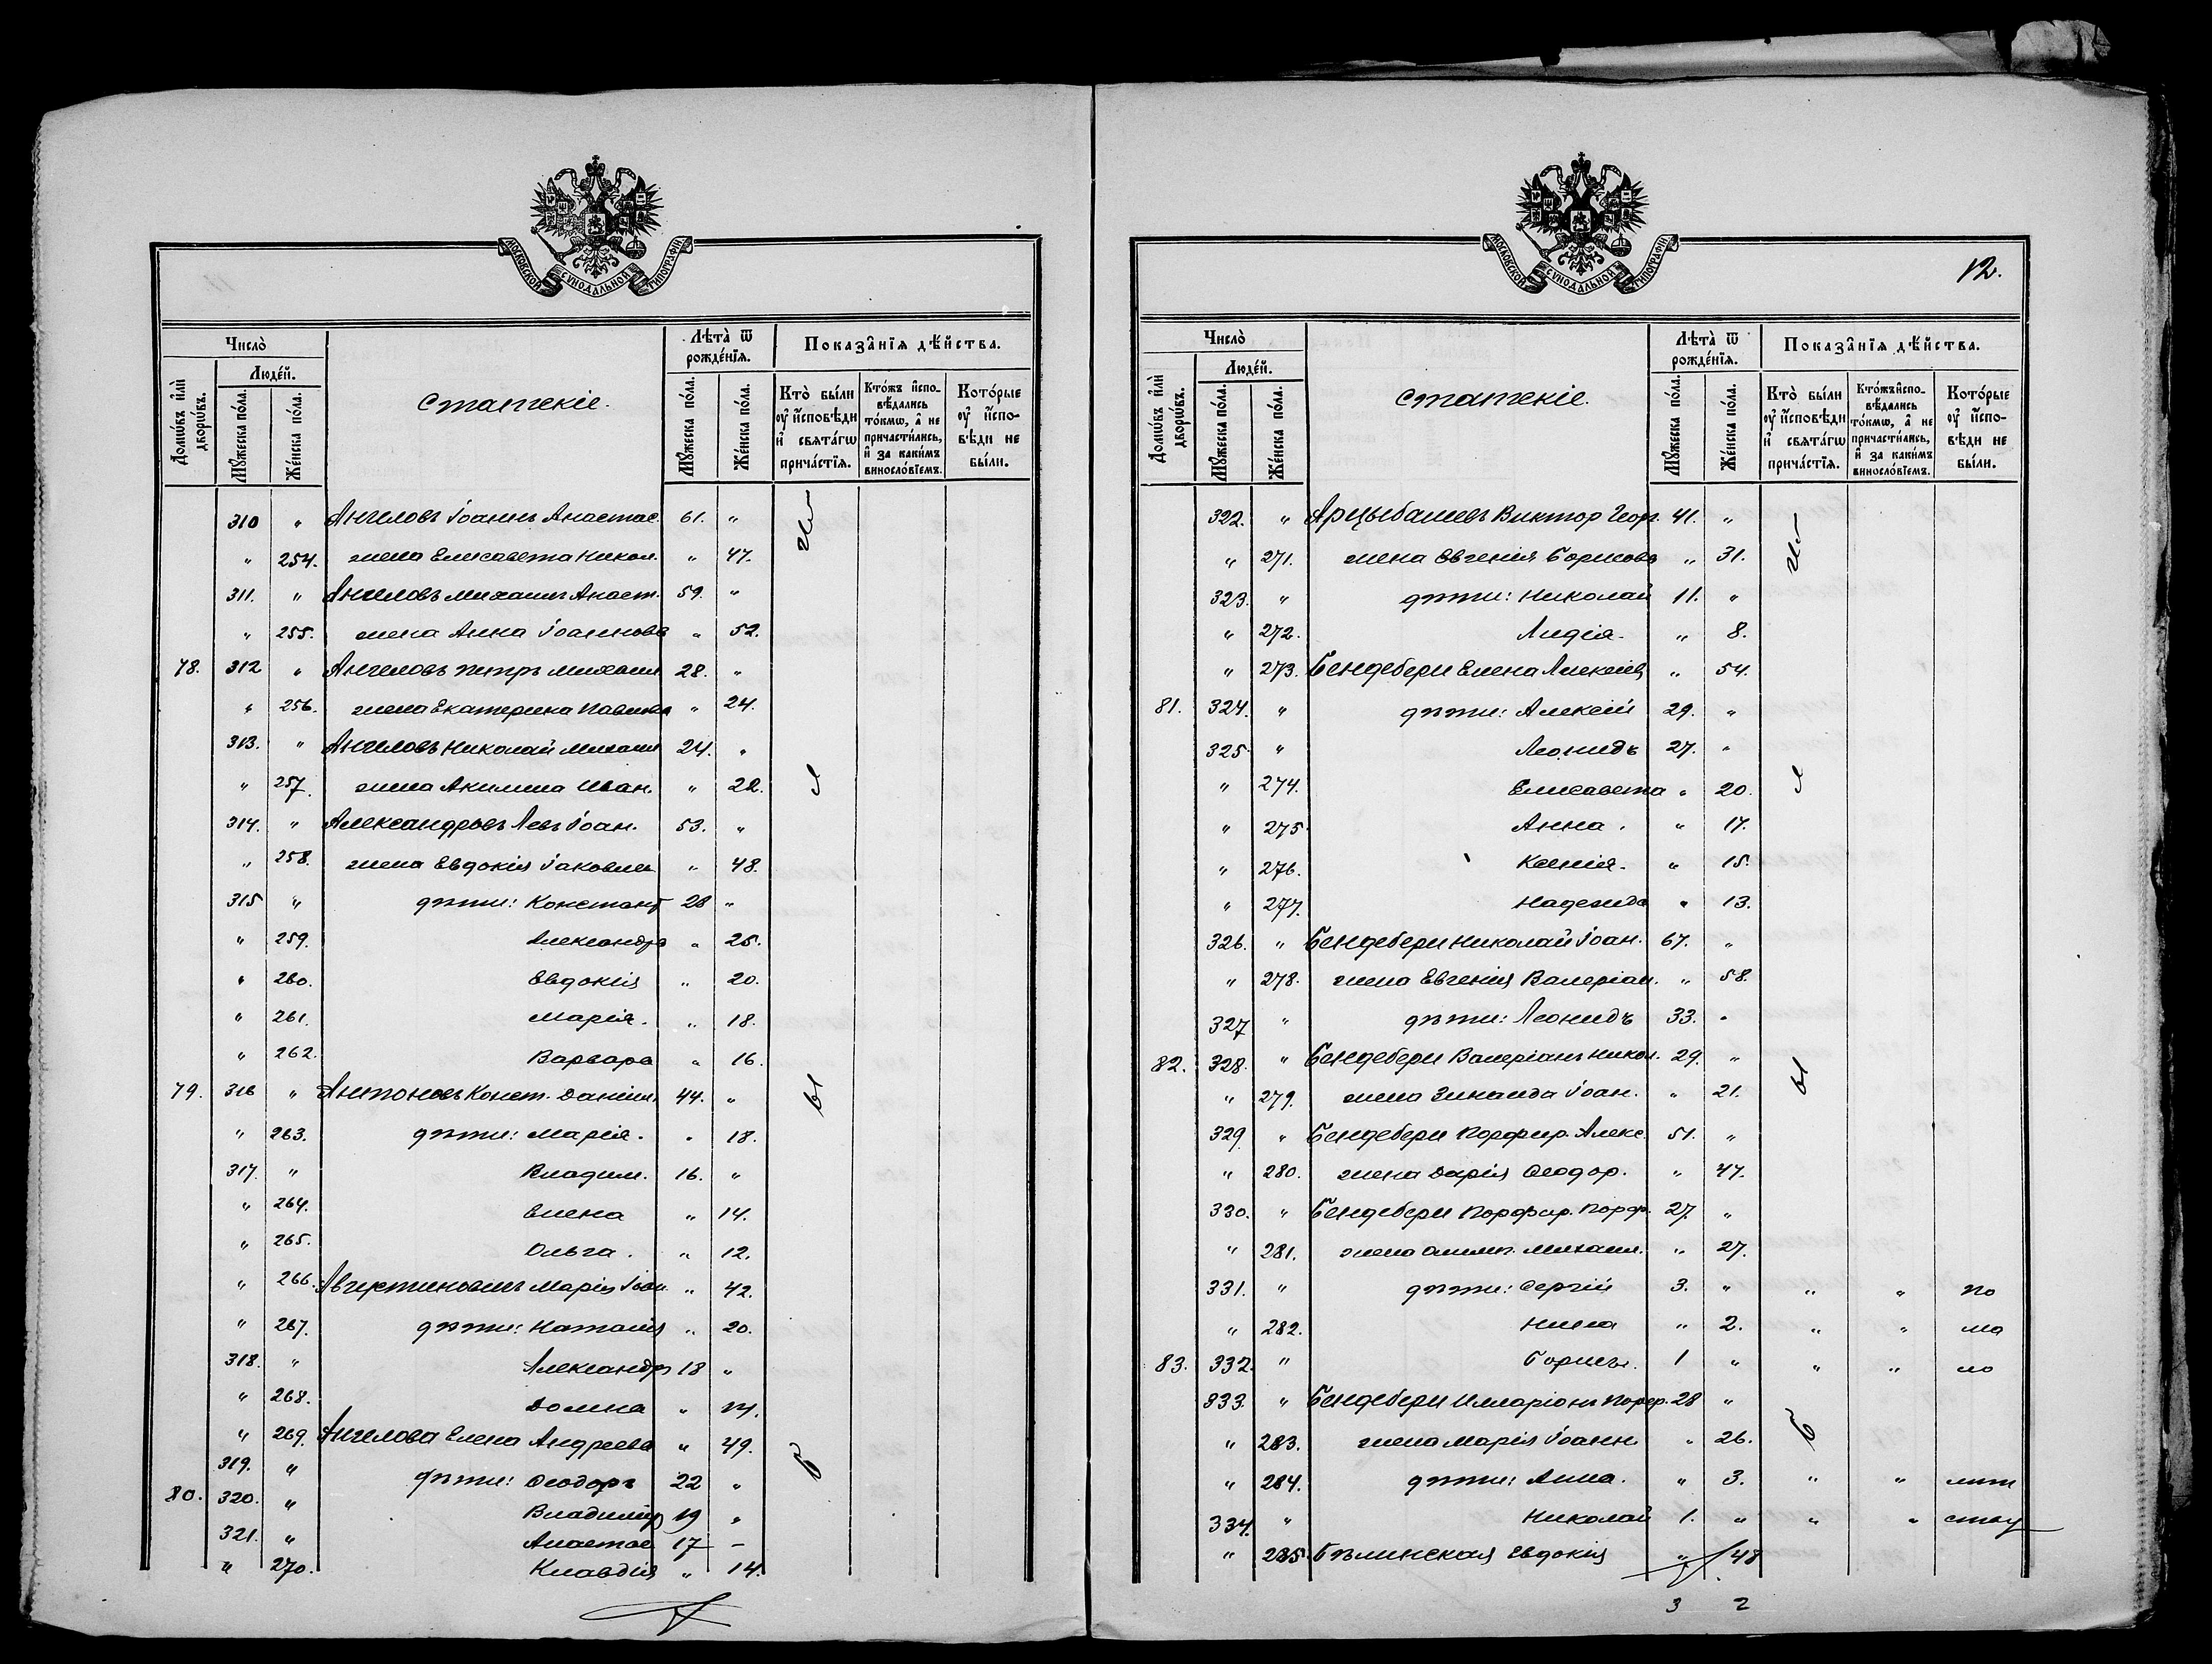 МОСКОВСКОЙ СѴНОДАЛЬНОЙ ТИПОГРАФІИ
Число̀
Люде́й.
Домѡ́въ и҆лѝ дворѡ́въ.
Мꙋ́жеска по́ла.
Же́нска по́ла.
Статскіе.
Лѣ́та ѿ рожде́нїѧ.
Мꙋ́жеска по́ла.
Же́нска по́ла.
Показа̑нїѧ дѣ́йства.
Кто̀ бы́ли ᲂу҆ и҆́сповѣди и҆ свѧта́гѡ прича́стїѧ.
Кто́жъ и҆сповѣ́дались то́кмѡ, а҆ не причасти́лись, и҆ за каки́мъ винослѡ́вїемъ.
Кото́рые ᲂу҆ и҆́сповѣди не бы́ли.
310 " Ангеловъ Іоаннъ Анастас. 61. "
" 254. жена Елисавета Никол. " 47.
311. " Ангеловъ Михаилъ Анаст. 59. "
" 255. жена Анна Іоаннова " 52.
78. 312 " Ангеловъ Петръ Михаил. 28. "
" 256. жена Екатерина Павлова " 24.
313. " Ангеловъ Николай Михаил 24. "
" 257. жена Акилина Иван. " 22.
314. " Александровъ Левъ Іоан. 53. "
" 258. жена Евдокія Іаковлев " 48.
315 " дѣти: Констант 28 "
" 259. Александра " 25.
" 260. Евдокія " 20.
" 261. Марія. " 18.
" 262. Варвара " 16.
79. 316 " Антоновъ Конст. Даніил. 44. "
" 263. дѣти: Марія. " 18.
317. " Владим. 16. "
" 264. Елена " 14.
" 265. Ольга. " 12.
" 266. Августиновичъ Марія Іоан. " 42.
" 267. дѣти: Наталія " 20.
318. " Александръ 18 "
" 268. Домна "
" 269. Ангелова Елена Андреева " 49.
319. " дѣти: Ѳеодоръ 22 "
80. 320. " Владиміръ 19 "
321. " Анастас 17 –
" 270. Клавдія " 14.
12.
МОСКОВСКОЙ СѴНОДАЛЬНОЙ ТИПОГРАФІИ
Число̀
Люде́й.
Домѡ́въ и҆лѝ дворѡ́въ.
Мꙋ́жеска по́ла.
Же́нска по́ла.
Статскіе.
Лѣ́та ѿ рожде́нїѧ.
Мꙋ́жеска по́ла.
Же́нска по́ла.
Показа̑нїѧ дѣ́йства.
Кто̀ бы́ли ᲂу҆ и҆́сповѣди и҆ свѧта́гѡ прича́стїѧ.
Кто́жъ и҆сповѣ́дались то́кмѡ, а҆ не причасти́лись, и҆ за каки́мъ винослѡ́вїемъ.
Кото́рые ᲂу҆ и҆́сповѣди не бы́ли.
322. " Арцыбашевъ Виктор Георг. 41. "
" 271. жена Евгенія Борисова " 31.
323. " дѣти: Николай 11. "
" 272. Лидія. " 8.
" 273. Бендебери Елена Алексіев " 54.
81. 324. " дѣти: Алексій 29. "
325 " Леонидъ 27. "
" 274. Елисавета " 20.
" 275. Анна. " 17.
" 276. Ксенія. " 15.
" 277. Надежда " 13.
326. " Бендебери Николай Іоан. 67. "
" 278. жена Евгенія Валеріан. " 58.
327 " дѣти: Леонидъ 33. "
82. 328. " Бендебери Валеріанъ Никол. 29. "
" 279. жена Зинаида Іоан. " 21.
329. " Бендебери Порфир. Алекс. 51. "
" 280. жена Дарія Ѳеодор. " 47.
330. " Бендебери Порфир. Порф. 27. "
" 281. жена Олимп. Михаил. " 27.
331. " дѣти: Сергій 3. " " " по
" 282. Нина " 2. " " ма
83. 332. " Борисъ. 1 " " " ло
333. " Бендебери Илларіонъ Порф. 28 "
" 283. жена Марія Іоанн. " 26.
" 284. дѣти: Анна. " 3. " " лѣт
334. " Николай 1. " " " ству
" 285. Бѣлинская Евдокія " 48
3 2